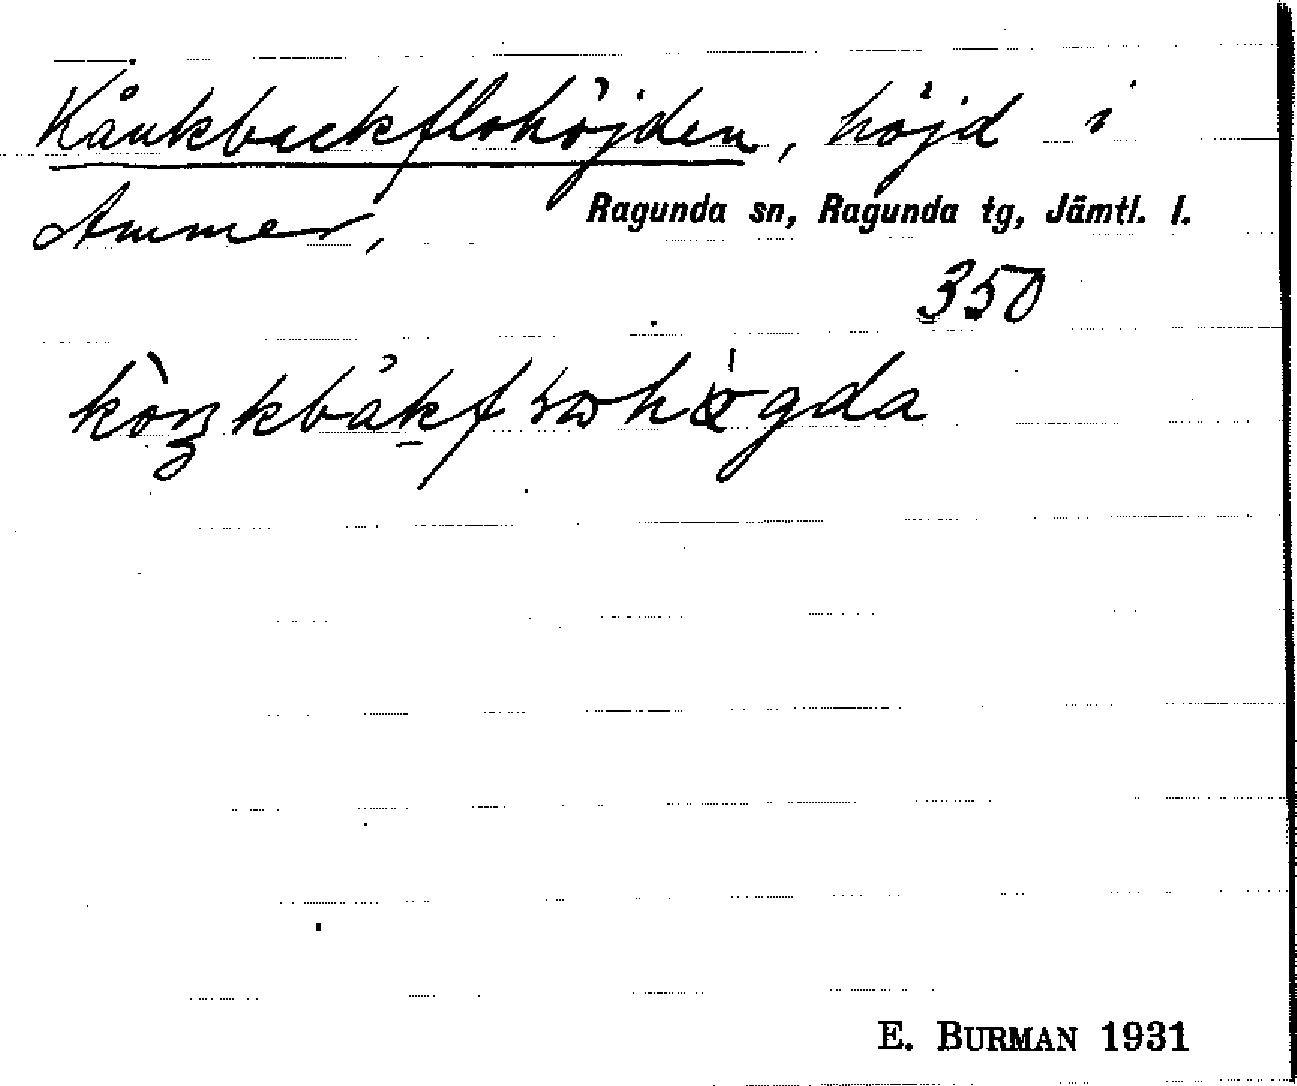 Kånkbackflohöjden, höjd i
Ammer, Ragunda sn, Ragunda tg, Jämtl. l.
350
E. BURMAN 1931